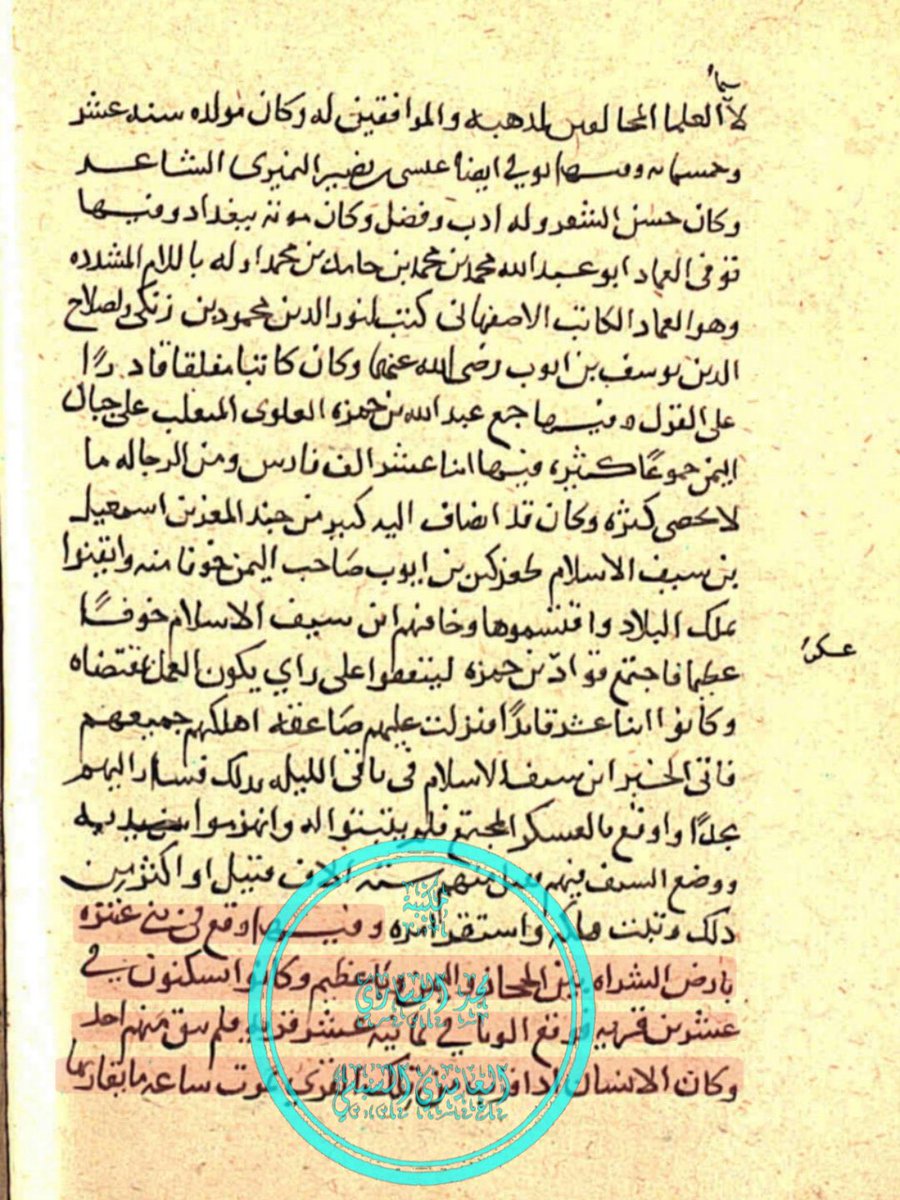 سيما
لا العلما المخالفين لمذهبه والموافقين له وكان مولده سنه عشر
وخمسمائه وفيها توفي ايضا عيسى بن نصير النميرى الشاعر
وكان حسن الشعر وله ادب وفضل وكان موته ببغداد وفيها
توفى العماد ابو عبد الله محمد بن محمد بن حامد بن محمد اوله باللام المشدده
وهو العماد الكاتب الاصفهانى كتب لنور الدين محمود بن زنكى ولصلاح
الدين يوسف بن ايوب رضى الله عنهما وكان كاتبا مفلقا قادرًا
على القول وفيها جمع عبد الله بن حمزه العلوى المتغلب على جبال
اليمن جموعًا كثيره فيها اثنا عشر الف فارس ومن الرجاله ما
لا يحصى كثره وكان قد انضاف اليه كبير من جند المعز بن اسمعيل
بن سيف الاسلام طغزكين بن ايوب صَاحب اليمن خوفا منه وايقنوا
بملك البلاد واقتسموها وخافهم ابن سيف الاسلام خوفًا
عظيما فاجتمع قواد بن حمزه ليتفقوا على راي يكون العمل بمقتضاه
عسكر
وكانوا اثنا عشر قايدًا فنزلت عليهم صَاعقه اهلكتهم جميعهم
فاتى الخبر ابن سيف الاسلام فى باقى الليله بذلك فسار اليهم
مجدًا واوقع بالعسكر المجتمع فلم يثبتوا له وانهزموا بين يديه
ووضع السيف فيهم فقتل منهم سته الاف قتيل او اكثر من
ذلك وثبت ملكه واستقر امره وفيها وقع فى بني عنزه
بارض الشراه بين الحجاز واليمن وبا عظيم وكانوا يسكنون في
عشرين قريه فوقع الوبا في ثمانيه عشر قريه فلم يبق منهم احد
وكان الانسان اذا قرب من تلك القرى يموت ساعه ما يقاربها